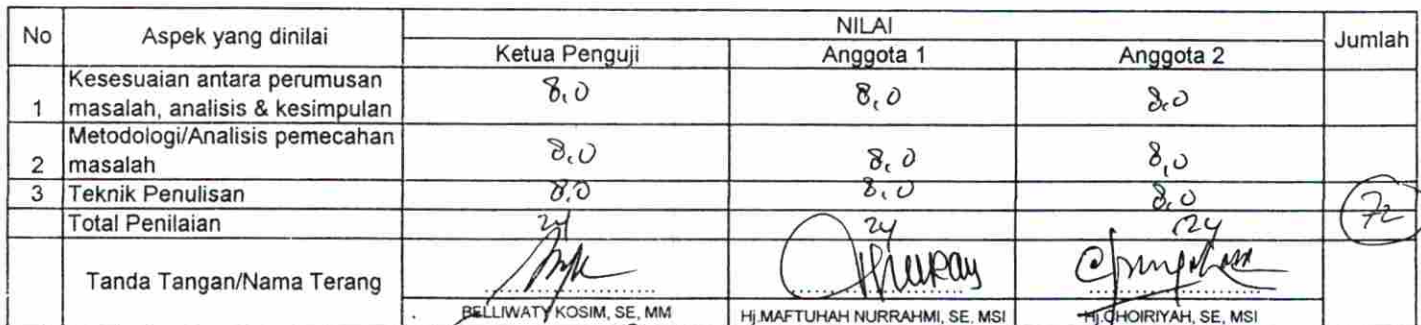 No Aspek yang dinilai NILAI Jumlah
Ketua Penguji Anggota 1 Anggota 2
Kesesuaian antara perumusan
1 masalah, analisis & kesimpulan 8,0 8,0 8,0
Metodologi/Analisis pemecahan
2 masalah 8,0 8,0 8,0
3 Teknik Penulisan 8,0 8,0 8,0
Total Penilaian 24 24 24 72
Tanda Tangan/Nama Terang
BELLIWATY KOSIM, SE, MM Hj.MAFTUHAH NURRAHMI, SE, MSI Hj.CHOIRIYAH, SE, MSI